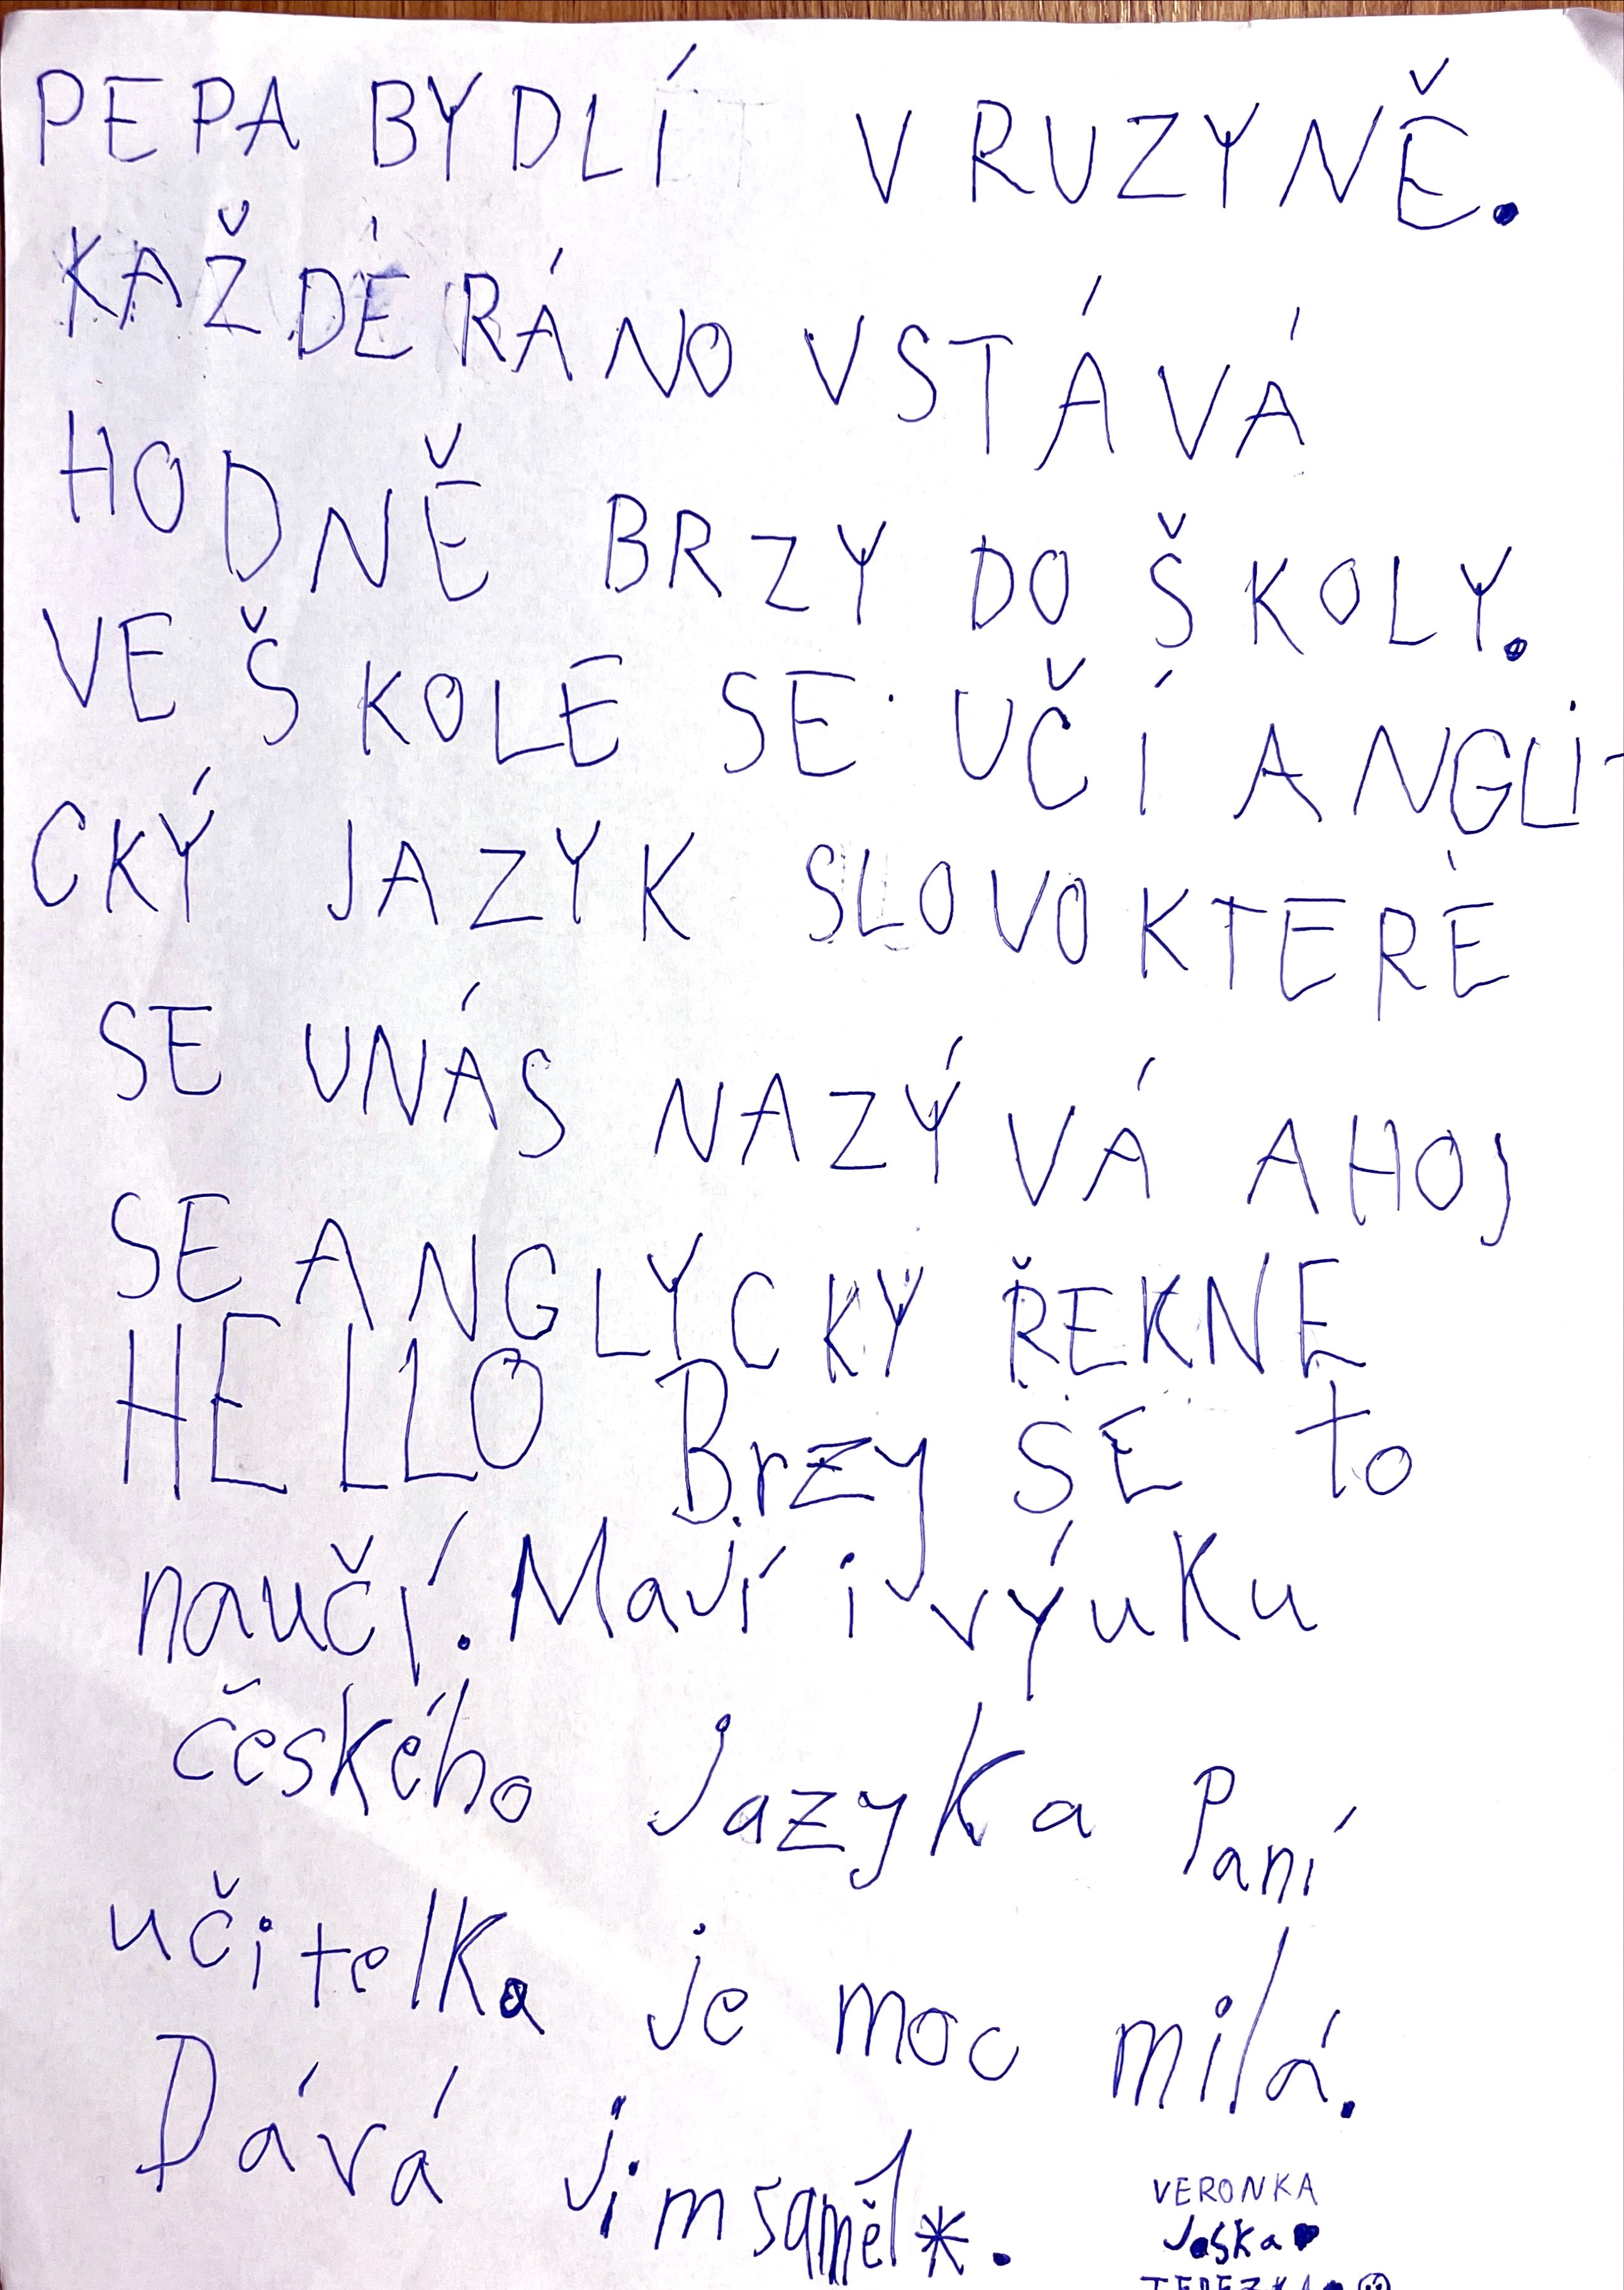 PEPA BYDLÍ V RUZYNĚ.
KAŽDÉ RÁNO VSTÁVÁ
HODNĚ BRZY DO ŠKOLY.
VE ŠKOLE SE UČÍ ANGLI-
CKÝ JAZYK SLOVO KTERÉ
SE UNÁS NAZÝVÁ AHOJ
SE ANGLYCKY ŘEKNE
HELLO Brzy SE to
naučí. Maví i výuku
českého Jazyka Paní
učitelka je moc milá.
Dává jim saměl*.
VERONKA
Joska♥
TEREZKA♥☺